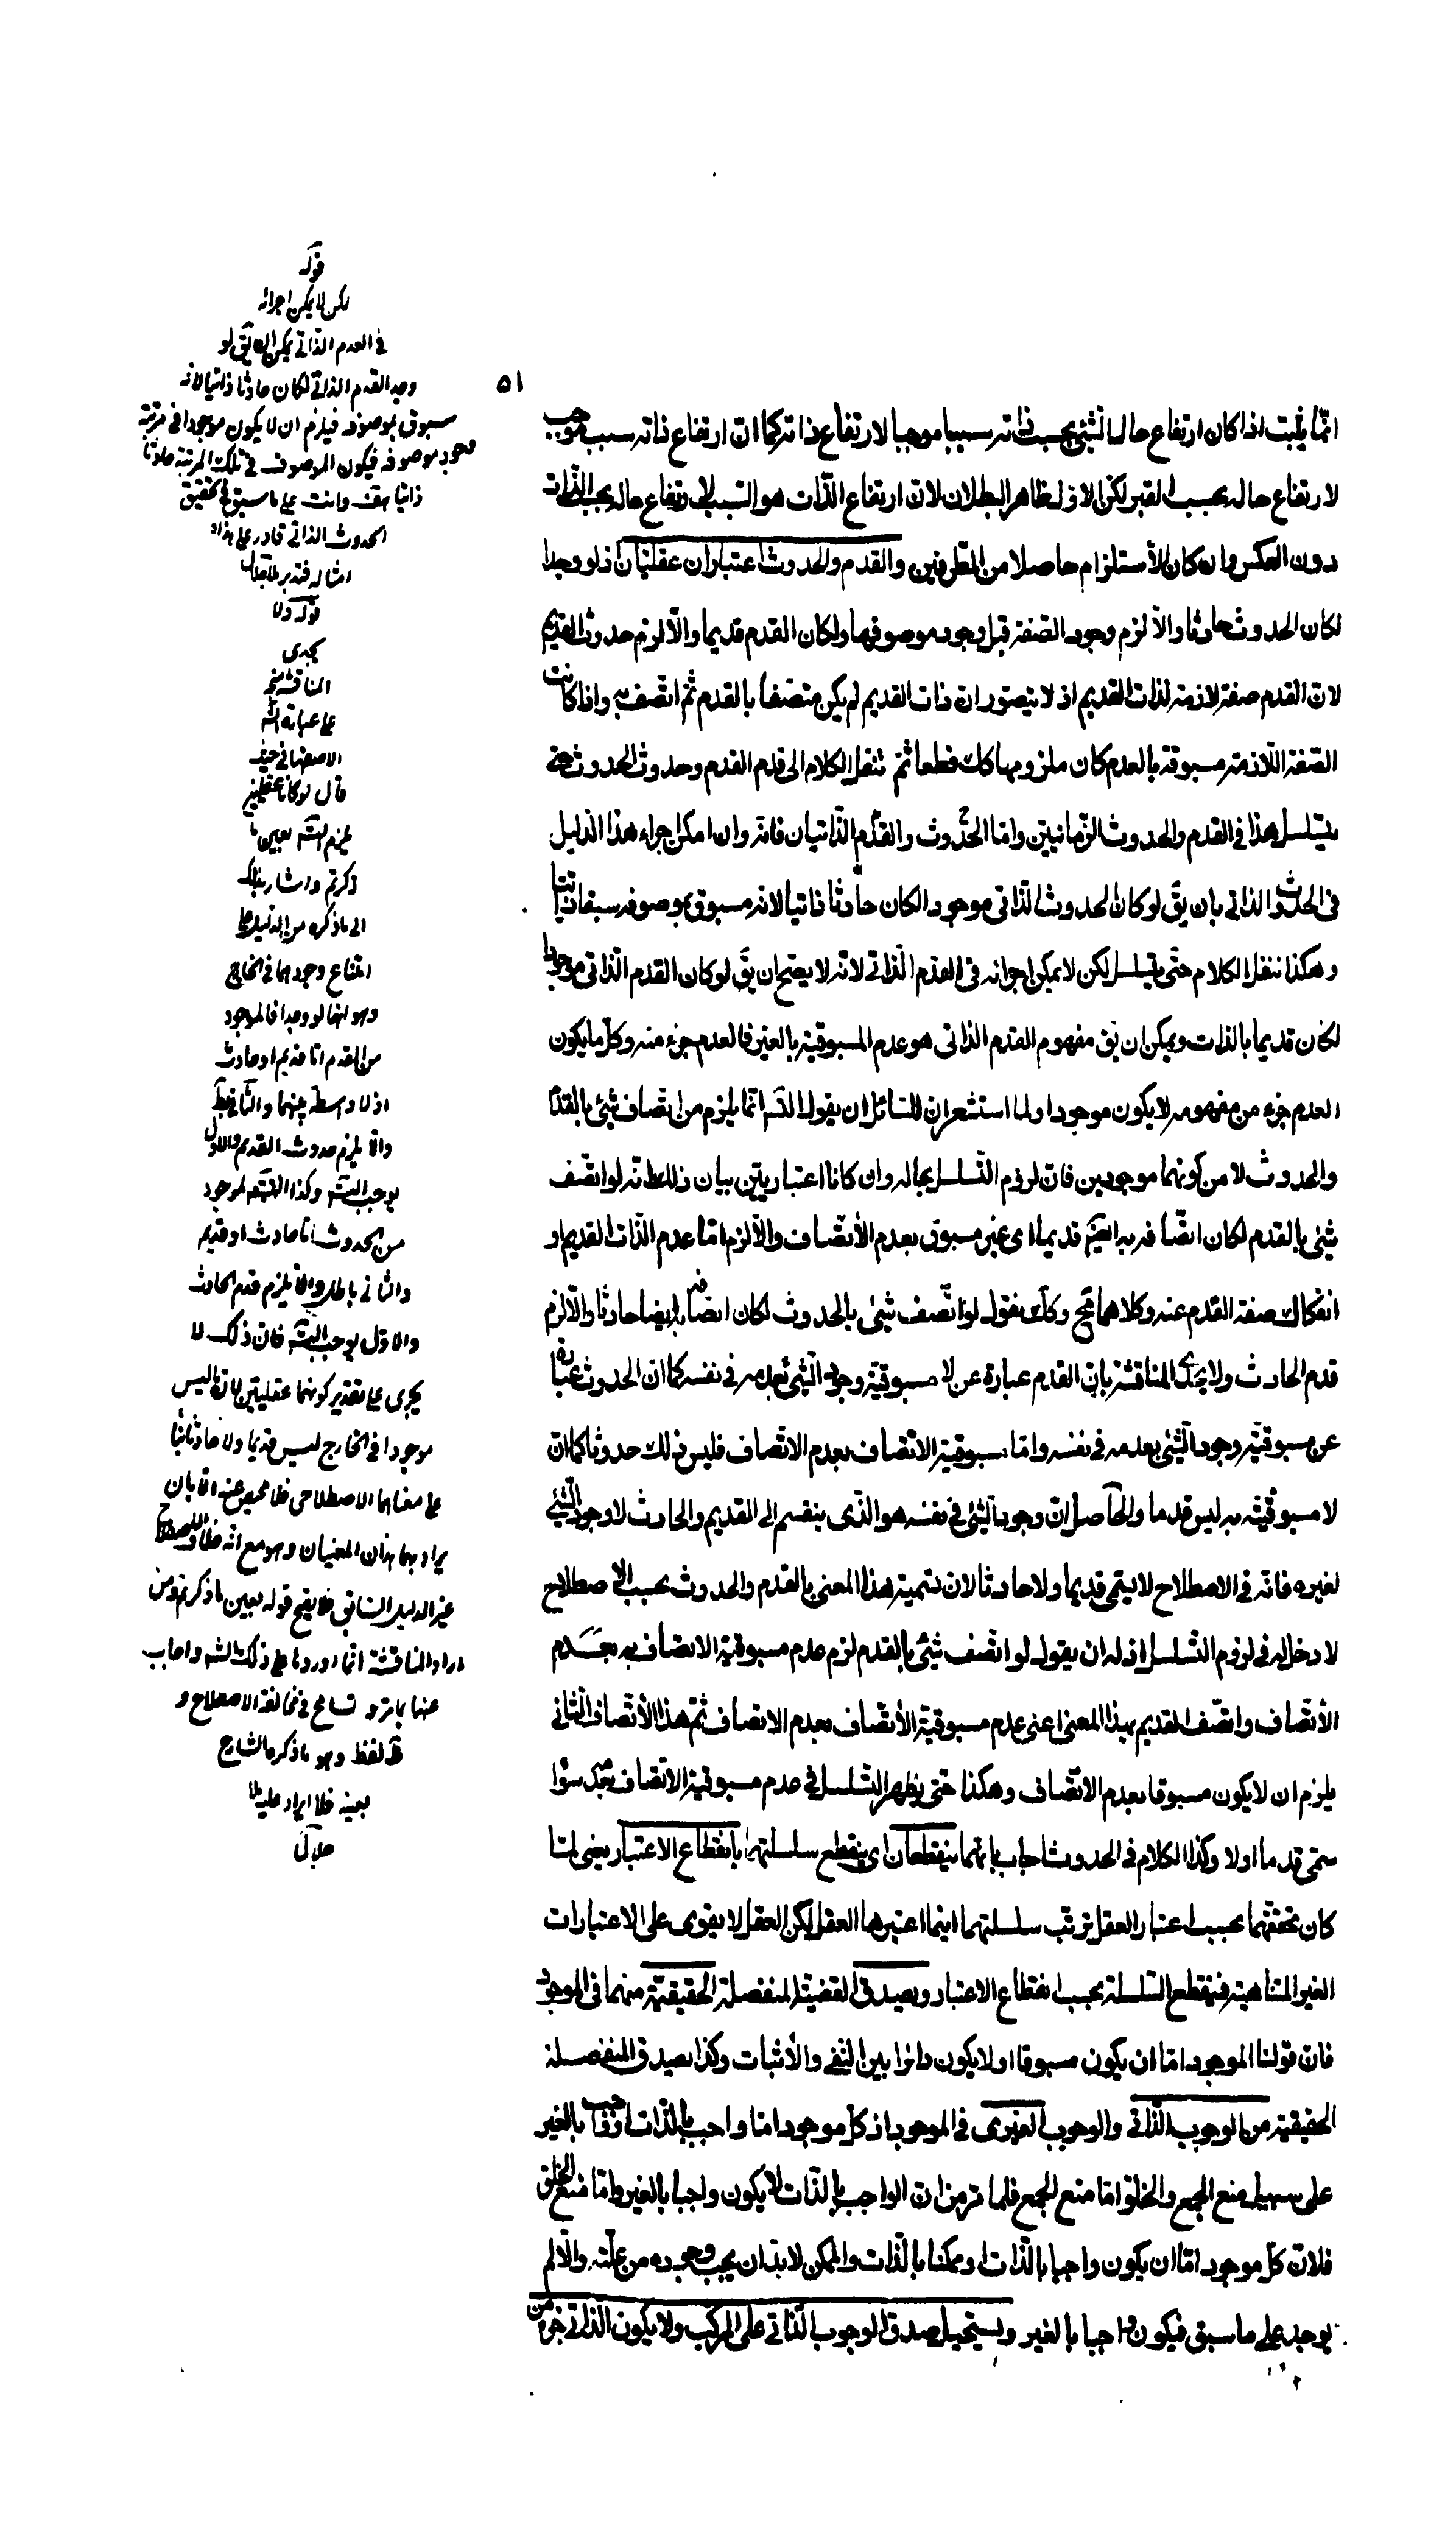 ٥١
انما يثبت اذا كان ارتفاع حال الشئ بحسب ذاته سببا موجبا لارتفاع ذاته كما ان ارتفاع ذاته سبب موجب
لارتفاع حاله بحسب الغير لكن الاول ظاهر البطلان لان ارتفاع الذات هو السبب لارتفاع حاله بحسب الذات
دون العكس وان كان الاستلزام حاصلا من الطرفين والقدم والحدوث اعتباران عقليان اذ لو وجدا
لكان الحدوث حادثا والا لزم وجود الصفة قبل وجود موصوفها ولكان القدم قديما والا لزم حدوث القديم
لان القدم صفة لازمة لذات القديم اذ لا يتصور ان ذات القديم لم يكن متصفا بالقدم ثم اتصف به واذا كانت
الصفة اللازمة مسبوقة بالعدم كان ملزومها كك قطعا ثم ننقل الكلام الى قدم القدم وحدوث الحدوث حتى
يتسلسل هذا في القدم والحدوث الزمانيين واما الحدوث والقدم الذاتيان فانه وان امكن اجراء هذا الدليل
في الحدوث الذاتي بان يق لو كان الحدوث الذاتي موجودا لكان حادثا ذاتيا لانه مسبوق بموصوفه سبقا ذاتيا
وهكذا ننقل الكلام حتى يتسلسل لكن لا يمكن اجرائه في القدم الذاتي لانه لا يصح ان يق لو كان القدم الذاتي موجودا
لكان قديما بالذات ويمكن ان يق مفهوم القدم الذاتي هو عدم المسبوقية بالغير فالعدم جزء منه وكل ما يكون
العدم جزء من مفهومه لا يكون موجودا ولما استشعر ان للسائل ان يقول التسـ انما يلزم من اتصاف شئ بالقدم
والحدوث لا من كونهما موجودين فان لزوم التسلسل بحاله وان كانا اعتباريين بيان ذلك انه لو اتصف
شئ بالقدم لكان اتصافه به ايضا قديما اى غير مسبوق بعدم الاتصاف والا لزم اما عدم الذات القديم او
انفكاك صفة القدم عنه وكلاهما مح وكذا نقول لو اتصف شئ بالحدوث لكان اتصافه به ايضا حادثا والا لزم
قدم الحادث ولا يجدى المناقشة بان القدم عبارة عن لا مسبوقية وجود الشئ بعدمه في نفسه كما ان الحدوث عبارة
عن مسبوقية وجود الشئ بعدمه في نفسه واما مسبوقية الاتصاف بعدم الاتصاف فليس ذلك حدوثا كما ان
لا مسبوقيته به ليس قدما والحاصل ان وجود الشئ في نفسه هو الذى ينقسم الى القديم والحادث لا وجود الشئ
لغيره فانه في الاصطلاح لا يسمى قديما ولا حادثا لان تسمية هذا المعنى بالقدم والحدوث بحسب الاصطلاح
لا دخل له في لزوم التسلسل اذ له ان يقول لو اتصف شئ بالقدم لزم عدم مسبوقية الاتصاف به بعدم
الاتصاف واتصف القديم بهذا المعنى اعنى عدم مسبوقية الاتصاف بعدم الاتصاف ثم هذا الاتصاف الثاني
يلزم ان لا يكون مسبوقا بعدم الاتصاف وهكذا حتى يظهر التسلسل في عدم مسبوقية الاتصاف بعدمه سواء
سمى قدما او لا وكذا الكلام في الحدوث اجاب بانهما ينقطعان اى ينقطع سلسلتهما بانقطاع الاعتبار يعنى لما
كان تحققهما بحسب اعتبار العقل ترتب سلسلتهما اينما اعتبرها العقل لكن العقل لا يقوى على الاعتبارات
الغير المتناهية فتنقطع السلسلة بحسب انقطاع الاعتبار ويصدق القضية المنفصلة الحقيقية منهما في الموجود
فان قولنا الموجود اما ان يكون مسبوقا او لا يكون دائرا بين النفى والاثبات وكذا يصدق المنفصلة
الحقيقية من الوجوب الذاتي والوجوب الغيرى في الموجود اذ كل موجود اما واجب بالذات او واجب بالغير
على سبيل منع الجمع والخلو اما منع الجمع فلما مر من ان الواجب بالذات لا يكون واجبا بالغير واما منع الخلو
فلان كل موجود اما ان يكون واجبا بالذات او ممكنا بالذات والممكن لا بد ان يجب وجوده من علته والا لم
يوجد على ما سبق فيكون واجبا بالغير ويستحيل صدق الوجوب الذاتي على المركب ولا يكون الذاتي جزء من
قوله
لكن لا يمكن اجرائه
في القدم الذاتي يمكن ان يق لو
وجد القدم الذاتي لكان حادثا ذاتيا لانه
مسبوق بموصوفه فيلزم ان لا يكون موجودا في مرتبة
وجود موصوفه فيكون الموصوف في تلك المرتبة حادثا
ذاتيا هف وانت على ما سبق في تحقيق
الحدوث الذاتي قادر على هذا و
امثاله فتدبر
قوله ولا
يجدى
المناقشة
على عبارة
الاصفهانى حيث
قال لو كانا عقليين
يلزم التسـ بعين ما
ذكرتم واشار بذلك
الى ما ذكره من الدليل على
امتناع وجودهما في الخارج
وهو انهما لو وجدا فالموجود
من القدم اما قديم او حادث
اذ لا واسطة بينهما والثاني بط
والا يلزم حدوث القديم والاول
يوجب التسـ وكذا الموجود
من الحدوث اما حادث او قديم
والثاني باطل والا يلزم قدم الحادث
والاول يوجب التسـ فان ذلك لا
يجرى على تقدير كونهما عقليين لان ما ليس
موجودا في الخارج ليس قديما ولا حادثا
على معناهما الاصطلاحى فلا محيص عنه الا بان
يراد بهما هذان المعنيان وهو مع انه خلاف
غير الدليل السابق فلا يصح قوله بعين ما ذكرتم ومن
اراد المناقشة انما اوردها على ذلك التسـ واجاب
عنها بما مر و تسامح في مخالفة الاصطلاح و
لفظ وهو ما ذكره الشارح
بعينه فلا ايراد عليه